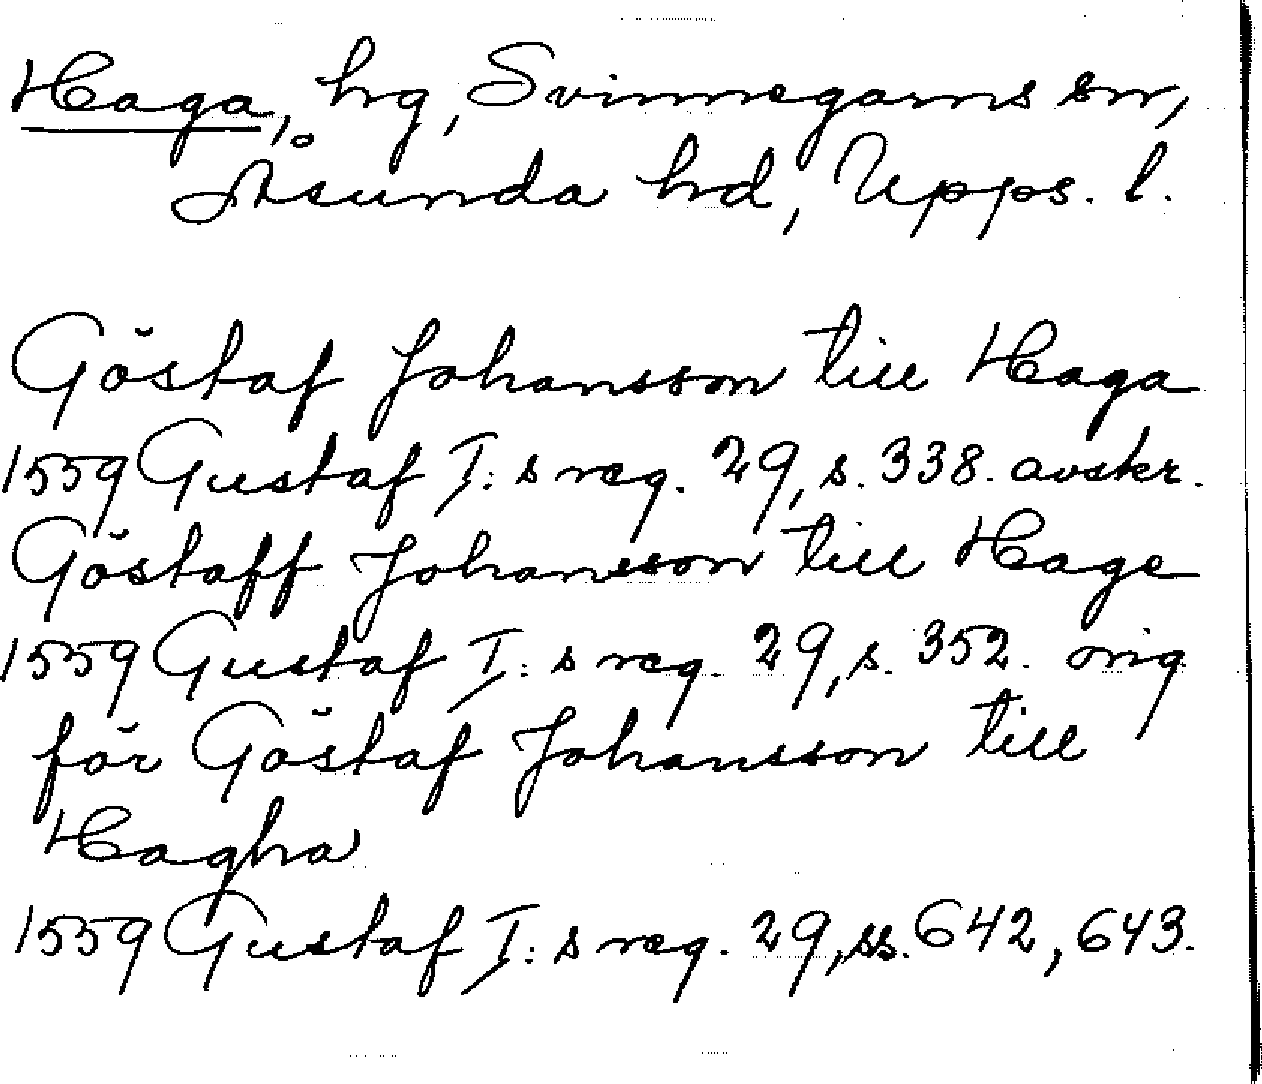 Haga, hg, Svinnegarns sn,
Åsunda hd, Upps. l.
Göstaf Johansson till Haga
1559 Gustaf I:s reg. 29, s. 338. avskr.
Göstaff Johansson till Hage
1559 Gustaf I:s reg. 29, s. 352. orig
för Göstaf Johansson till
Hagha
1559 Gustaf I:s reg. 29, ss. 642, 643.